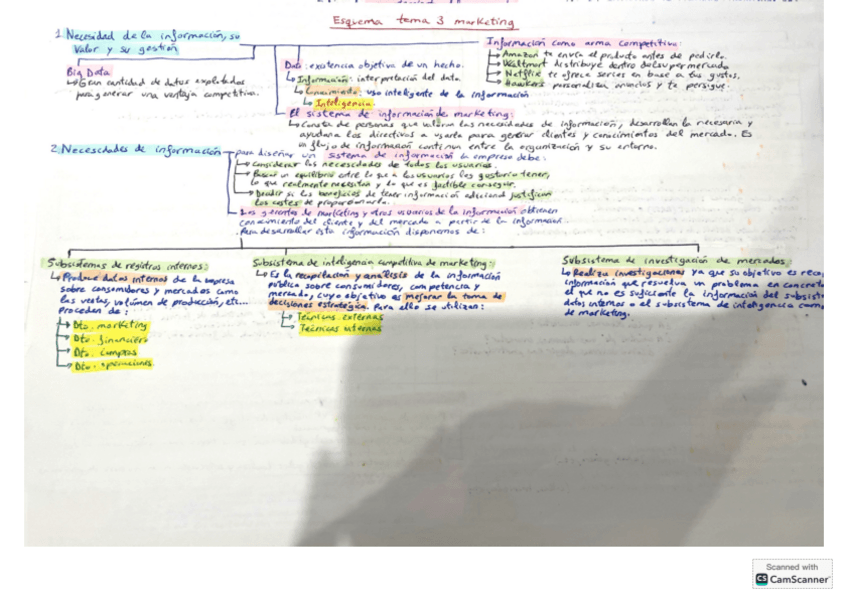 Esquema tema 3 marketing
1. Necesidad de la información, su
valor y su gestión
Big Data
Gran cantidad de datos explotados
para generar una ventaja competitiva.
Dato: existencia objetiva de un hecho.
Información: interpretación del dato
Conocimiento: uso inteligente de la información
Inteligencia
Información como arma competitiva:
Amazon te envía el producto antes de pedirlo.
Wallmart distribuye dentro del supermercado
Netflix te ofrece series en base a tus gustos.
Hawkers personaliza anuncios y te persigue.
El sistema de información de marketing:
Consta de personas que valoran las necesidades de información, desarrollan la necesaria y
ayudan a los directivos a usarla para generar clientes y conocimientos del mercado. Es
un flujo de información continuo entre la organización y su entorno.
2. Necesidades de información
para diseñar un sistema de información la empresa debe:
Considerar las necesidades de todos los usuarios.
Buscar un equilibrio entre lo que a los usuarios les gustaría tener,
lo que realmente necesitan y lo que es factible conseguir.
Decidir si los beneficios de tener información adicional justifican
los costes de proporcionarla.
Los gerentes de marketing y otros usuarios de la información obtienen
conocimiento del cliente y del mercado a partir de la información.
Para desarrollar esta información disponemos de:
Subsistemas de registros internos:
Produce datos internos de la empresa
sobre consumidores y mercados como
las ventas, volúmen de producción, etc...
Proceden de:
Dto. marketing
Dto. financiero
Dto. compras
Dto. operaciones
Subsistema de inteligencia competitiva de marketing:
Es la recopilación y análisis de la información
pública sobre consumidores, competencia y
mercado, cuyo objetivo es mejorar la toma de
decisiones estratégica. Para ello se utilizan:
Técnicas externas
Técnicas internas
Subsistema de investigación de mercados:
Realiza investigaciones ya que su objetivo es reco
información que resuelva un problema en concreto
el que no es suficiente la información del subsist
datos internos o el subsistema de inteligencia com
de marketing.
Scanned with
CS CamScanner